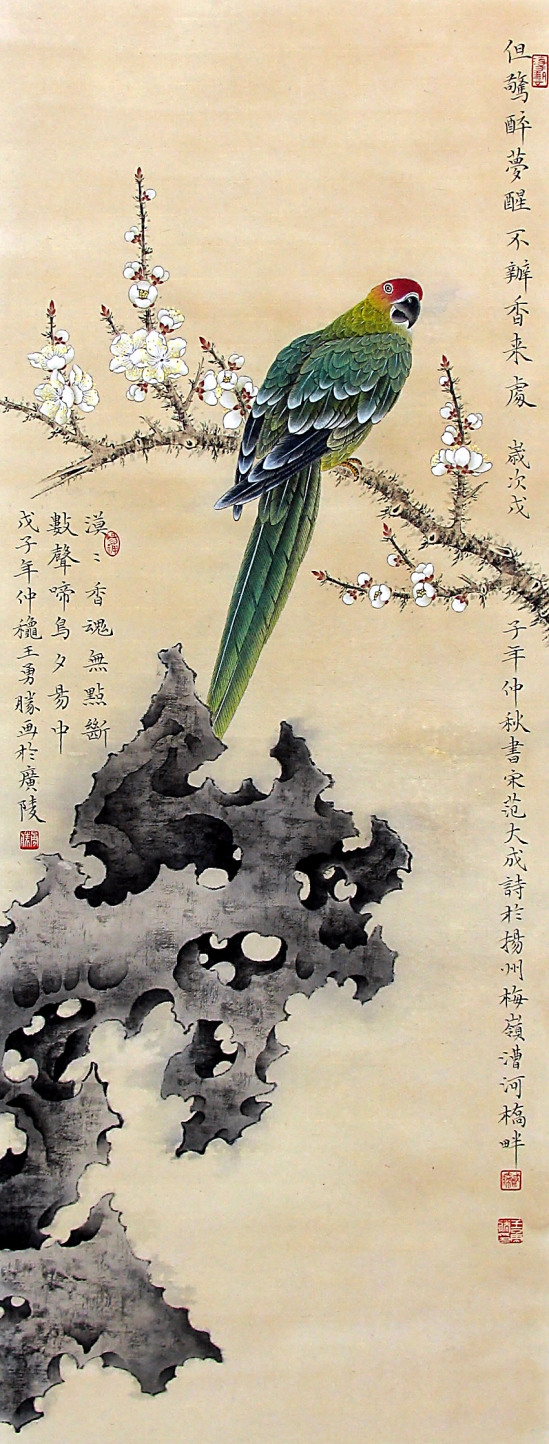 但驚醉夢醒不辦香来處 歲次戊
子年仲秋書宋范大成詩於揚州梅嶺漕河橋畔
漠〻香魂無點斷
數聲啼鳥夕昜中
戊子年仲龝王勇勝画於廣陵